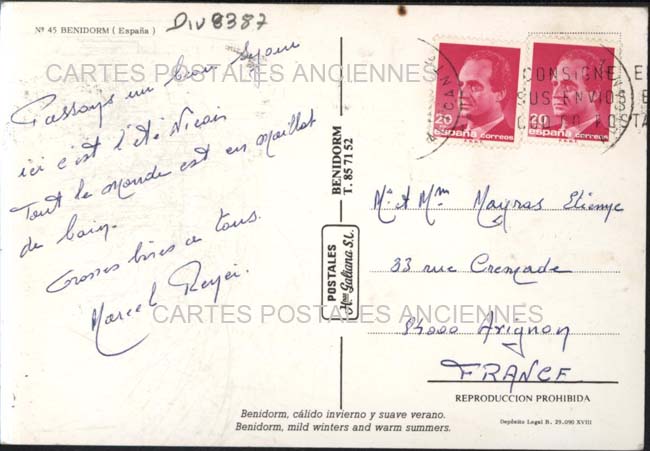 Nº 45 BENIDORM (España)
Div 8387
CARTES POSTALES ANCIENNES
Passons un bon séjour
ici c'est l'été Niçois
Tout le monde est en maillot
de bain.
Grosses bises a tous.
Marcel
BENIDORM
T. 85 71 52
POSTALES
Hnos Galiana S.L.
20
ESPAÑA correos
20
ESPAÑA correos
CONSIGNE E
SUS ENVIOS E
STA
Mr et Mme Mayras Etienne
33 rue
84000 Avignon
FRANCE
CARTES POSTALES ANCIENNES
REPRODUCCION PROHIBIDA
Benidorm, cálido invierno y suave verano.
Benidorm, mild winters and warm summers.
Depósito Legal B. 29.090 XVIII